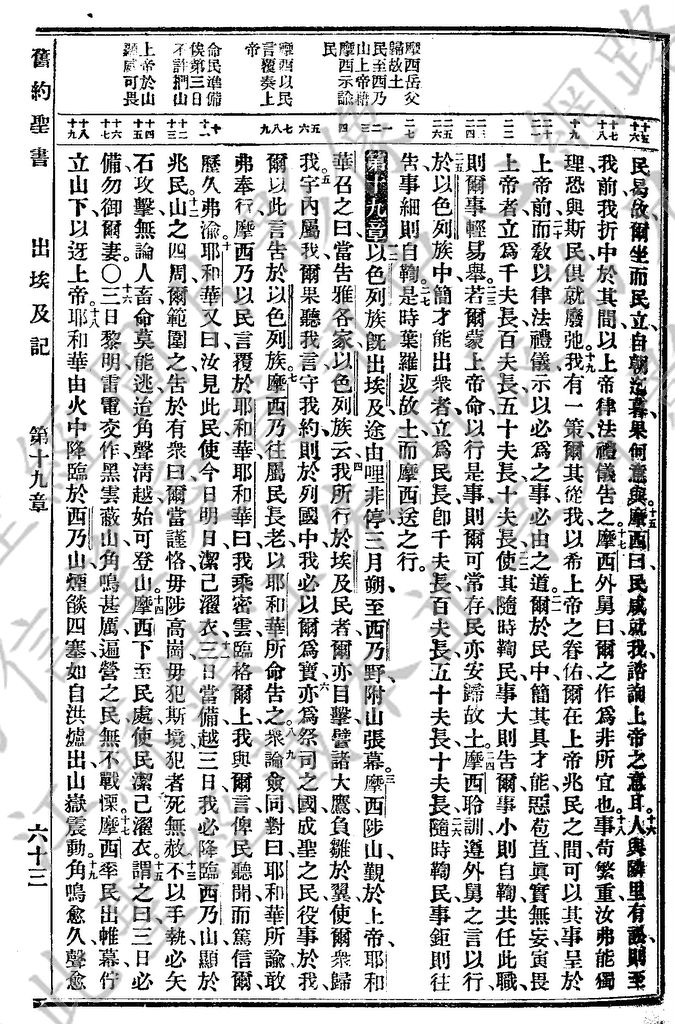 民易故爾坐而民立自朝迄暮果何意與摩西曰民咸就我諮諏上帝之意耳人與隣里有議則至
我前我折中於其間以上帝律法禮儀告之摩西外舅曰爾之作爲非所宜也事苟繁重汝弗能獨
理恐與斯民俱就廢弛我有一策爾其從我以希上帝之眷佑爾在上帝兆民之間可以其事呈於
上帝前而教以律法禮儀示以必爲之事必由之道爾於民中簡其具才能惡苞苴眞實無妄寅畏
上帝者立爲千夫長百夫長五十夫長十夫長使其隨時鞫民事大則告爾事小則自鞫共任此職
則爾事輕易舉若爾蒙上帝命以行是事則爾可常存民亦安歸故土摩西聆訓遵外舅之言以行
於以色列族中簡才能出衆者立爲民長卽千夫長百夫長五十夫長十夫長隨時鞫民事鉅則往
告事細則自鞫是時葉羅返故土而摩西送之行
第十九章以色列族旣出埃及途由哩非停三月朔至西乃野附山張幕摩西陟山覲於上帝耶和
華召之曰當告雅各家以色列族云我所行於埃及民者爾亦目擊譬諸大鷹負雛於翼使爾衆歸
我宇內屬我爾果聽我言守我約則於列國中我必以爾爲寶亦爲祭司之國成聖之民役事於我
爾以此言告於以色列族摩西乃往屬民長老以耶和華所命告之衆論僉同對曰耶和華所諭敢
弗奉行摩西乃以民言覆於耶和華耶和華曰我乘密雲臨格爾上我與爾言俾民聽聞而篤信爾
歷久弗渝耶和華又曰汝見此民使今日明日潔己濯衣三日當備越三日我必降臨西乃山顯於
兆民山之四周爾範圍之告於有衆曰爾當謹恪毋陟高崗毋犯斯境犯者死無赦不以手執必矢
石攻擊無論人畜命莫能逃迨角聲清越始可登山摩西下至民處使民潔己濯衣謂之曰三日必
備勿御爾妻〇三日黎明雷電交作黑雲蔽山角鳴甚厲遍營之民無不戰慄摩西率民出帷幕佇
立山下以迓上帝耶和華由火中降臨於西乃山煙燄四塞如自洪爐出山嶽震動角鳴愈久聲愈
摩西岳父
歸故土
民至西乃
山上帝藉
摩西示諭
民
摩西以民
言覆奏上
帝
命民準備
俟第三日
不許捫山
上帝於山
顯處可畏
舊約聖書 出埃及記 第十九章 六十三